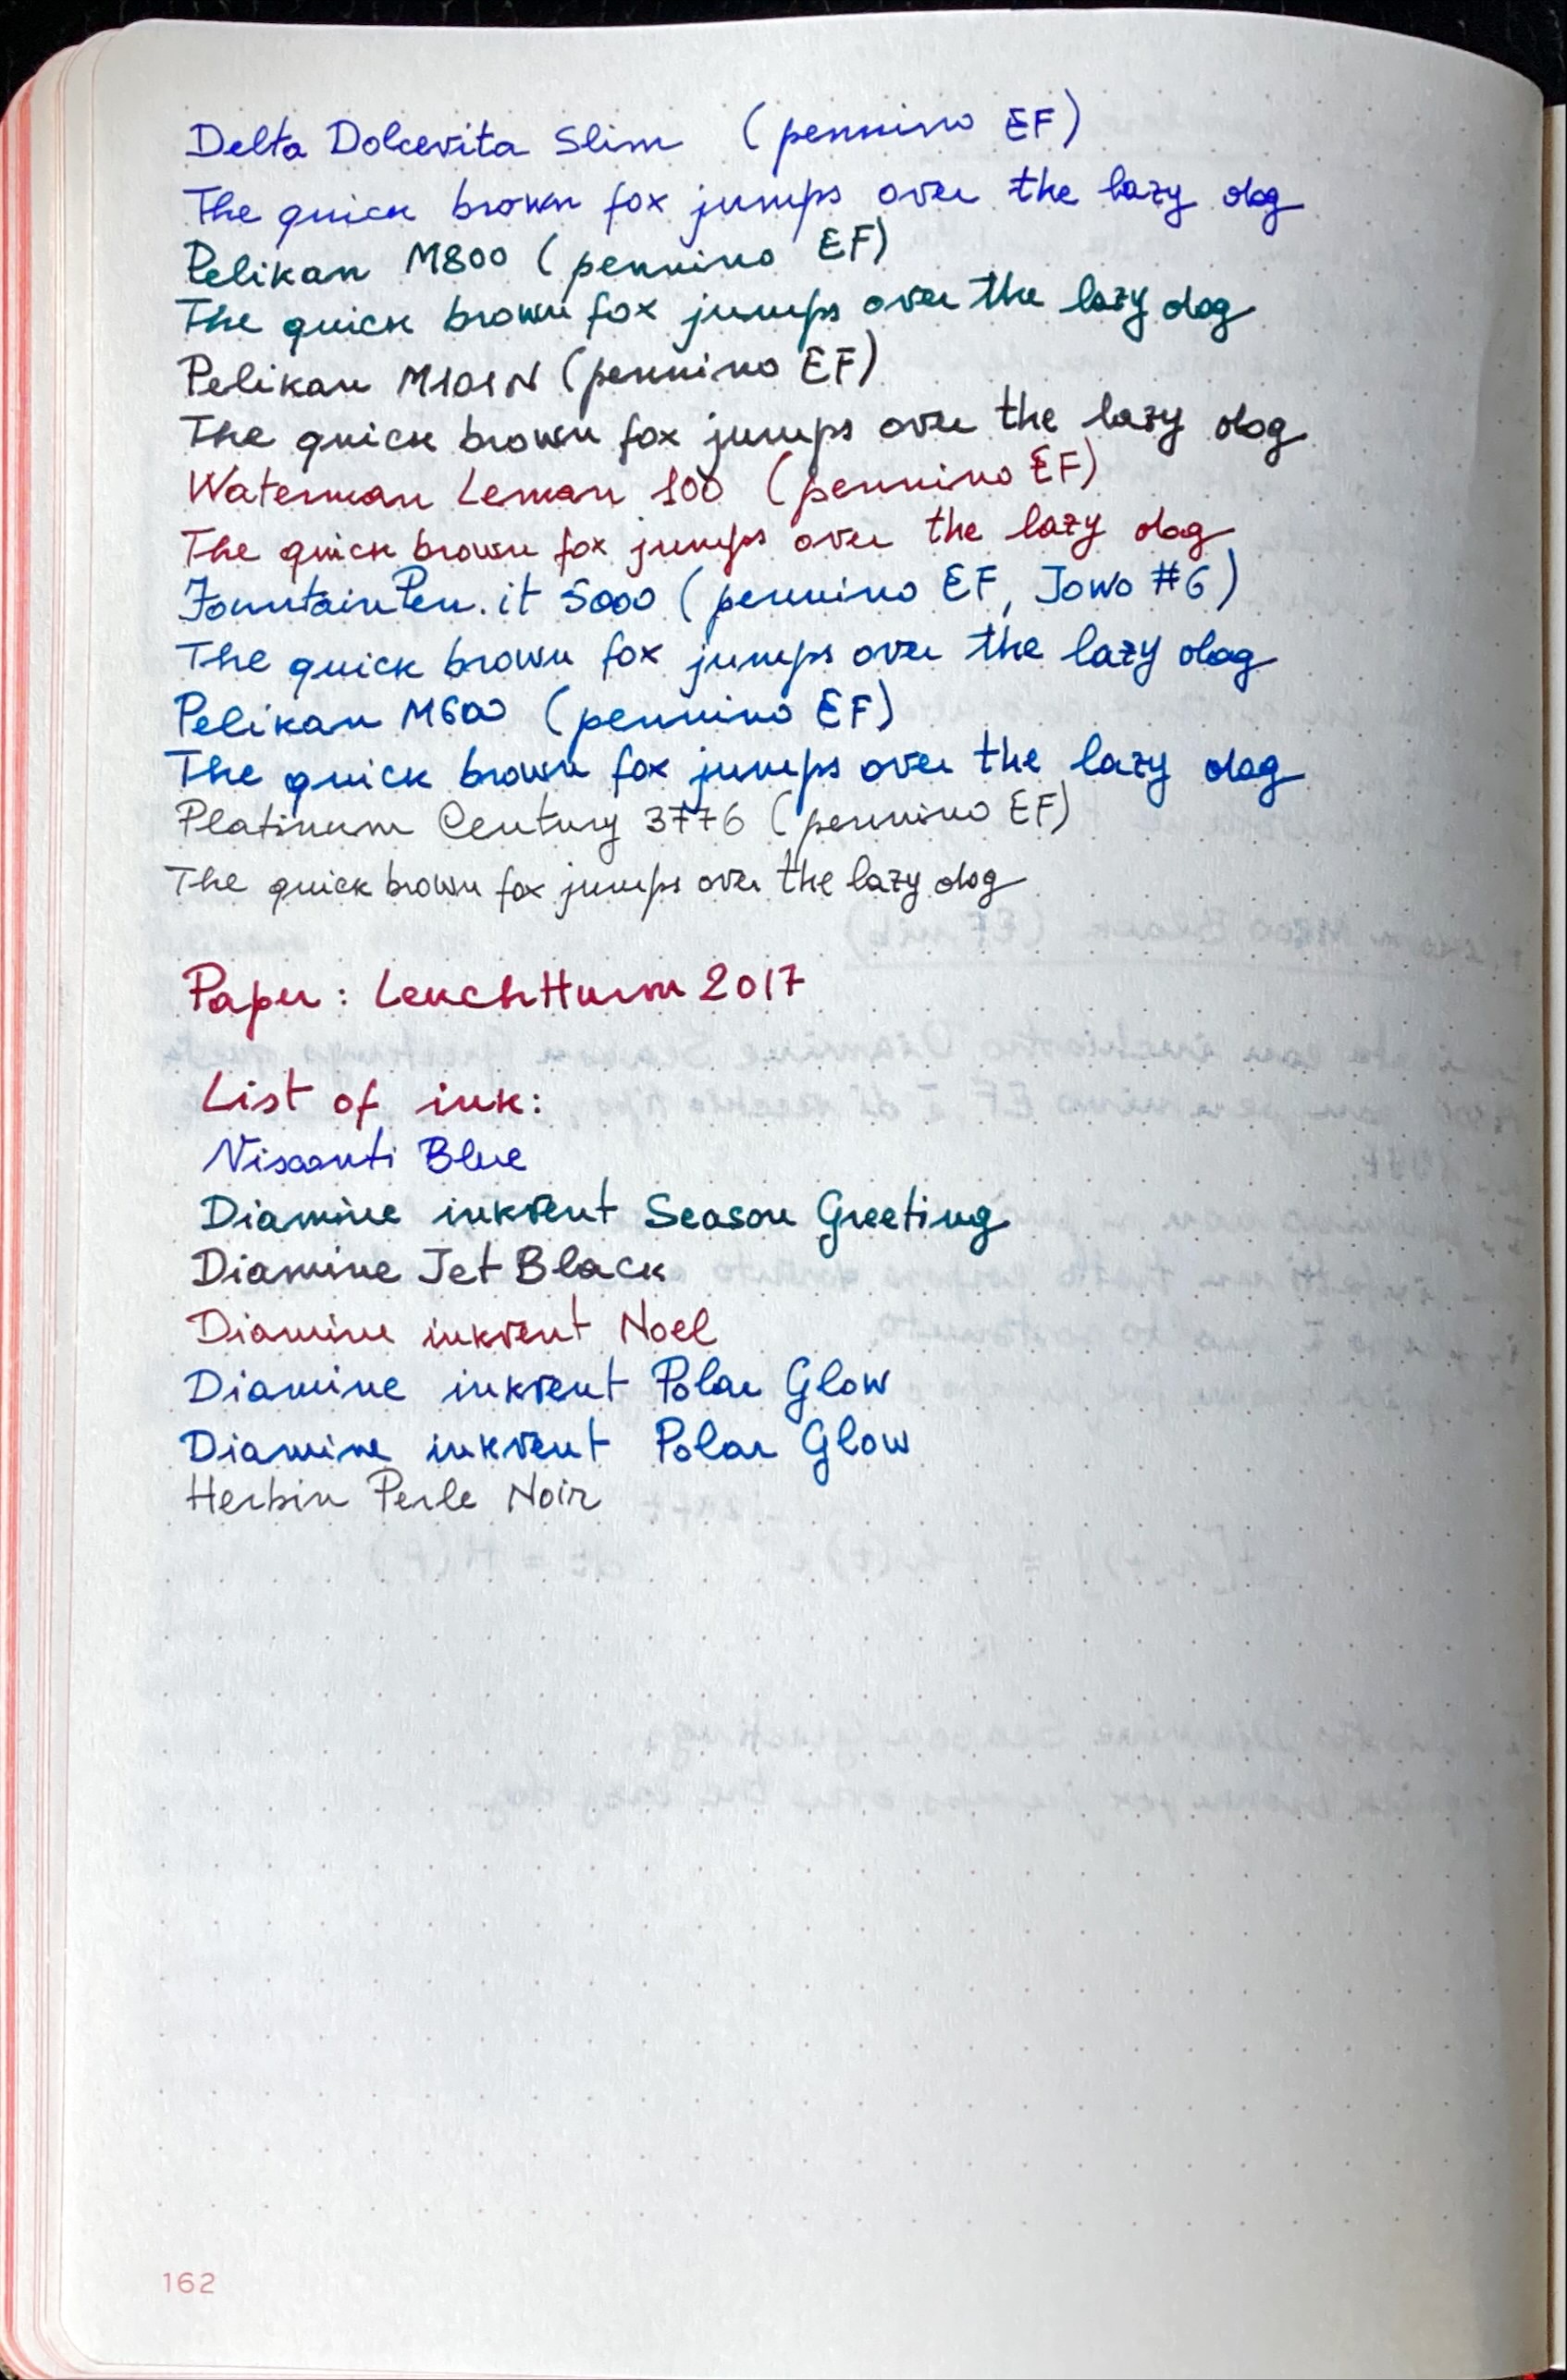 Delta Dolcevita Slim (pennino EF)
The quick brown fox jumps over the lazy dog
Pelikan M800 (pennino EF)
The quick brown fox jumps over the lazy dog
Pelikan M101N (pennino EF)
The quick brown fox jumps over the lazy dog
Waterman Leman 100 (pennino EF)
The quick brown fox jumps over the lazy dog
FountainPen.it 5000 (pennino EF, Jowo #6)
The quick brown fox jumps over the lazy dog
Pelikan M600 (pennino EF)
The quick brown fox jumps over the lazy dog
Platinum Century 3776 (pennino EF)
The quick brown fox jumps over the lazy dog
Paper: Leuchtturm 2017
List of ink:
Visconti Blue
Diamine inkvent Season Greeting
Diamine Jet Black
Diamine inkvent Noel
Diamine inkvent Polar Glow
Diamine inkvent Polar Glow
Herbin Perle Noir
162